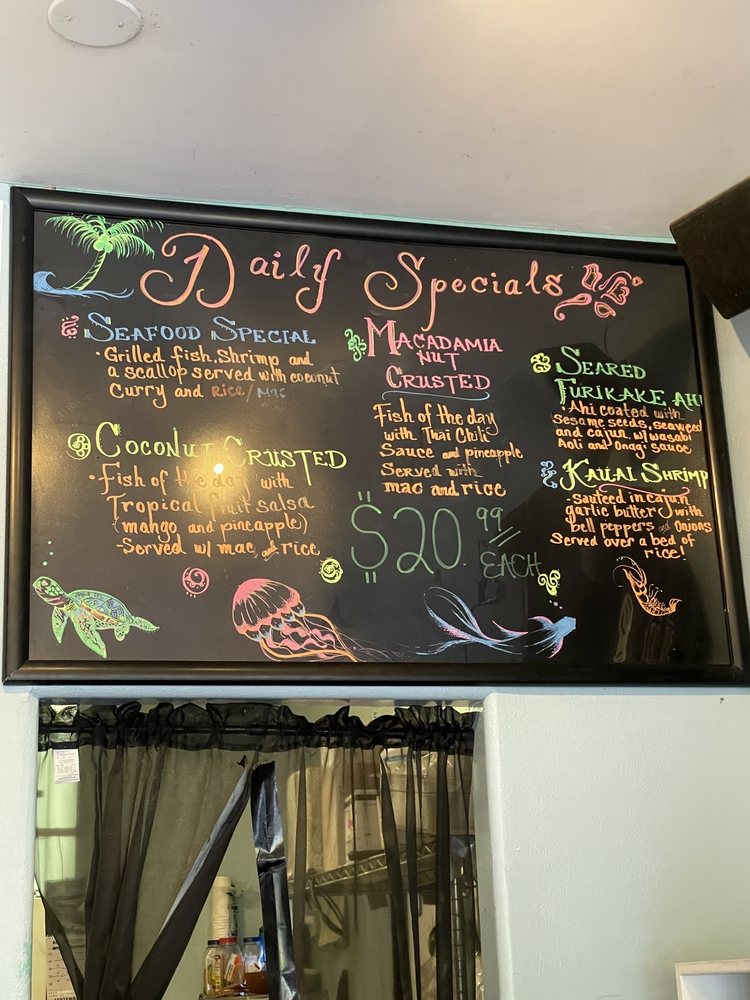 Daily Specials
SEAFOOD SPECIAL
· Grilled fish, Shrimp and
a scallop served with coconut
Curry and Rice/Mac
COCONUT CRUSTED
· Fish of the day with
Tropical fruit salsa
(mango and pineapple)
-Served w/ mac and rice
MACADAMIA
NUT
CRUSTED
Fish of the day
with Thai Chili
Sauce and pineapple
Served with
mac and rice
$20.99
EACH
SEARED
FURIKAKE AHI
· Ahi coated with
sesame seeds, seaweed
and cajun w/ wasabi
Aoli and Onagi sauce
KAUAI SHRIMP
-sauteed in cajun
garlic butter with
bell peppers and Onions
Served over a bed of
rice!